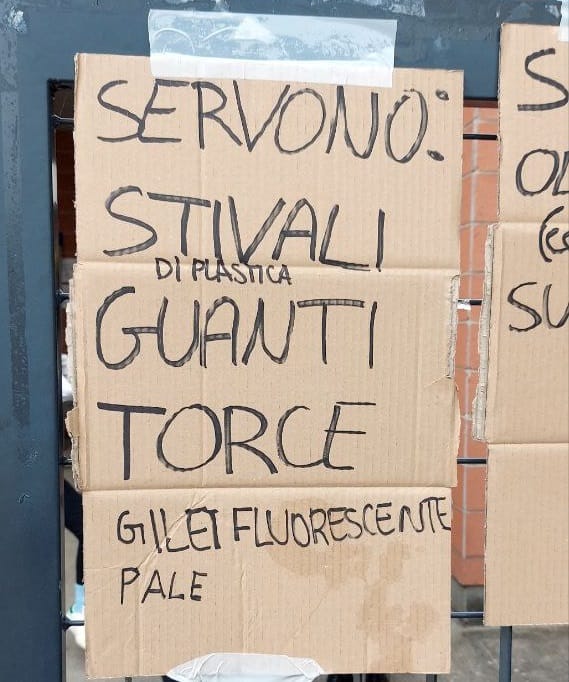 SERVONO:
STIVALI
DI PLASTICA
GUANTI
TORCE
GILET FLUORESCENTE
PALE